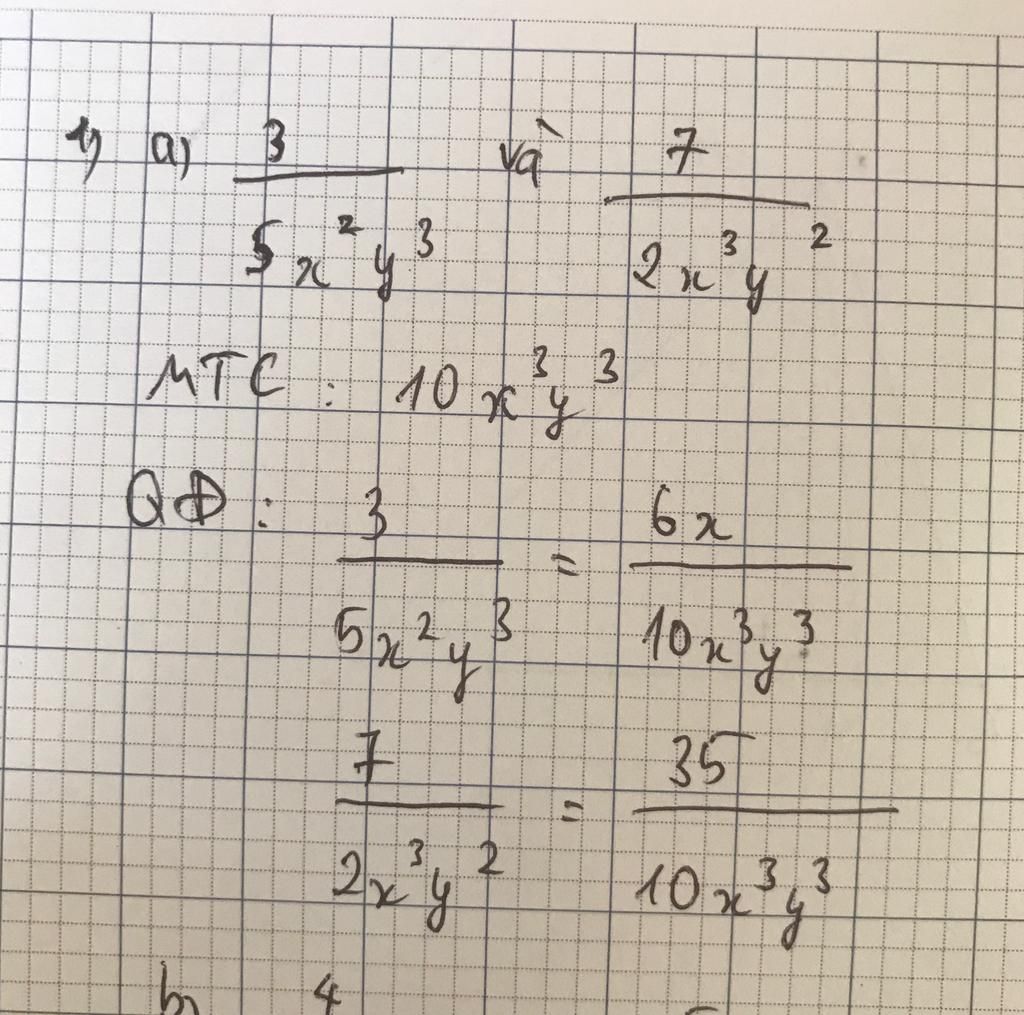 1) a) 3/(5x²y³) và 7/(2x³y²)
MTC : 10x³y³
QĐ : 3/(5x²y³) = 6x/(10x³y³)
7/(2x³y²) = 35/(10x³y³)
b) 4